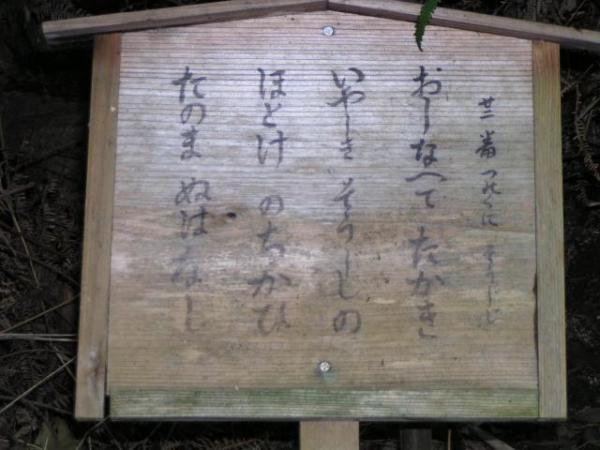 廿二番 つのくに そうじじ
おしなへて たかき
いやしき そうじしの
ほとけ のちかひ
たのま ぬはなし